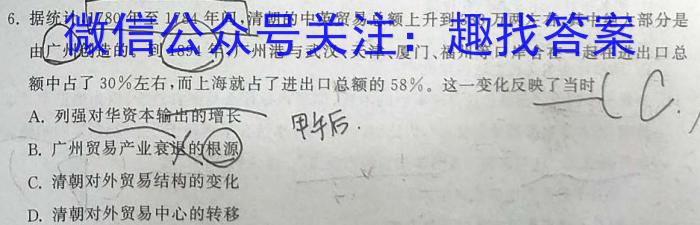 6. 据统计,1780年至1784年间,清朝的中英贸易总额上升到 万两 大部分是
微信公众号关注：趣找答案
由广州创造的。到1894年,广州港与武汉、天津、厦门、福州等口岸合在一起在进出口总
额中占了30%左右,而上海就占了进出口总额的58%。这一变化反映了当时 ( C. )
A. 列强对华资本输出的增长
甲午后.
B. 广州贸易产业衰退的根源
C. 清朝对外贸易结构的变化
D. 清朝对外贸易中心的转移